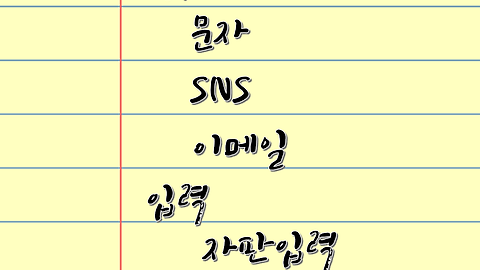 문자
SNS
이메일
입력
자판입력